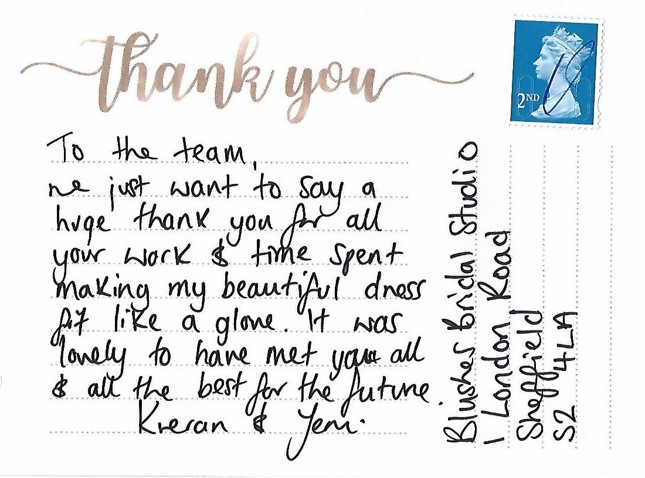 thank you
2ND
To the team,
we just want to say a
huge thank you for all
your work & time spent
making my beautiful dress
fit like a glove. It was
lovely to have met you all
& all the best for the future.
Kieran & Jem.
Blushes Bridal Studio
1 London Road
Sheffield
S2 4LA